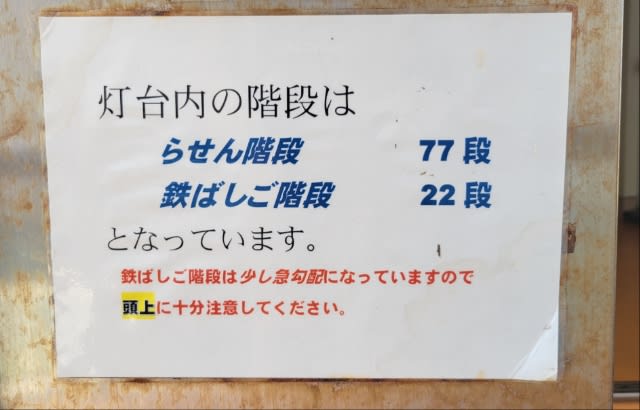 灯台内の階段は
らせん階段 77 段
鉄ばしご階段 22 段
となっています。
鉄ばしご階段は少し急勾配になっていますので
頭上に十分注意してください。